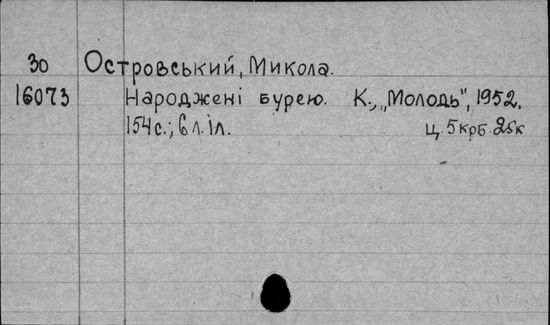 30 Островський, Микола.
16073 Народжені бурею. К., „Молодь", 1952.
154 с.; 6 л. іл. Ц. 5 крб. 25к